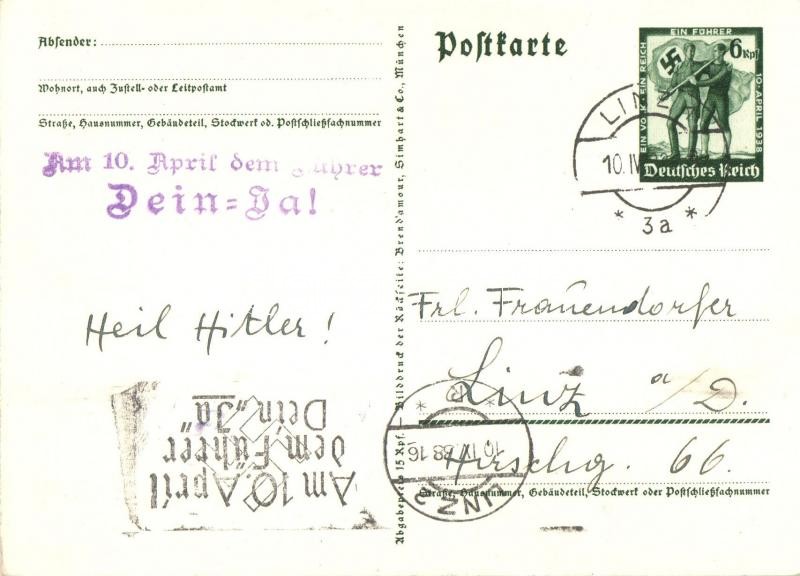 Absender:
Wohnort, auch Zustell- oder Leitpostamt
Straße, Hausnummer, Gebäudeteil, Stockwerk od. Postschließfachnummer
Am 10. April dem Führer
Dein=Ja!
Heil Hitler!
Am 10. April
dem Führer
Dein „Ja“
Abgabepreis 15 Rpf. — Bilddruck der Rückseite: Brend'amour, Simhart & Co., München
Postkarte
EIN VOLK EIN REICH
EIN FÜHRER
10. APRIL 1938
6 Rpf
Deutsches Reich
LINZ
10.IV
* 3a *
Frl. Frauendorfer
Linz a/D.
Hirschg. 66.
Straße, Hausnummer, Gebäudeteil, Stockwerk oder Postschließfachnummer
LINZ 2
10.IV.38.16